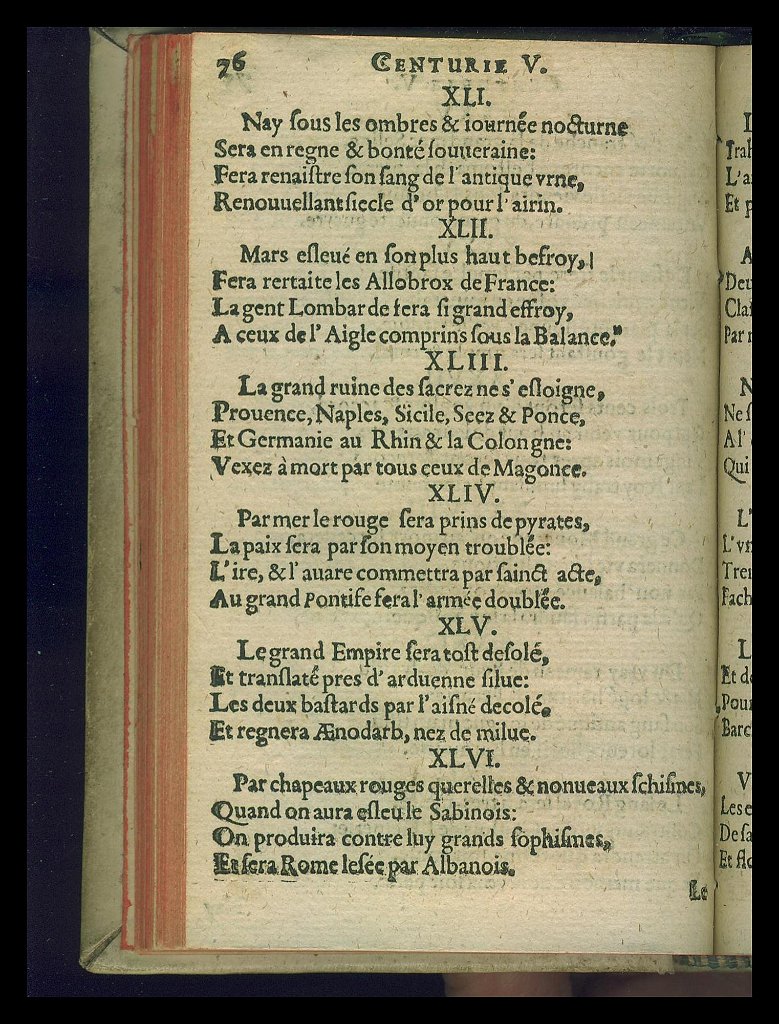 76 CENTURIE V.
XLI.
Nay ſous les ombres & iournée nocturne
Sera en regne & bonté ſouueraine:
Fera renaiſtre ſon ſang de l'antique vrne,
Renouuellant ſiecle d'or pour l'airin.
XLII.
Mars eſleué en ſon plus haut befroy,
Fera rertaite les Allobrox de France:
La gent Lombarde fera ſi grand effroy,
A ceux de l'Aigle comprins ſous la Balance.
XLIII.
La grand ruine des ſacrez ne s'eſloigne,
Prouence, Naples, Sicile, Seez & Ponce,
Et Germanie au Rhin & la Colongne:
Vexez à mort par tous ceux de Magonce.
XLIV.
Par mer le rouge ſera prins de pyrates,
La paix ſera par ſon moyen troublée:
L'ire, & l'auare commettra par ſainct acte,
Au grand Pontife fera l'armée doublée.
XLV.
Le grand Empire ſera toſt deſolé,
Et tranſlaté pres d'arduenne ſilue:
Les deux baſtards par l'aiſné decolé,
Et regnera Ænodarb, nez de milue.
XLVI.
Par chapeaux rouges querelles & nouueaux ſchiſmes,
Quand on aura eſleu le Sabinois:
On produira contre luy grands ſophiſmes,
Et ſera Rome leſée par Albanois.
Le